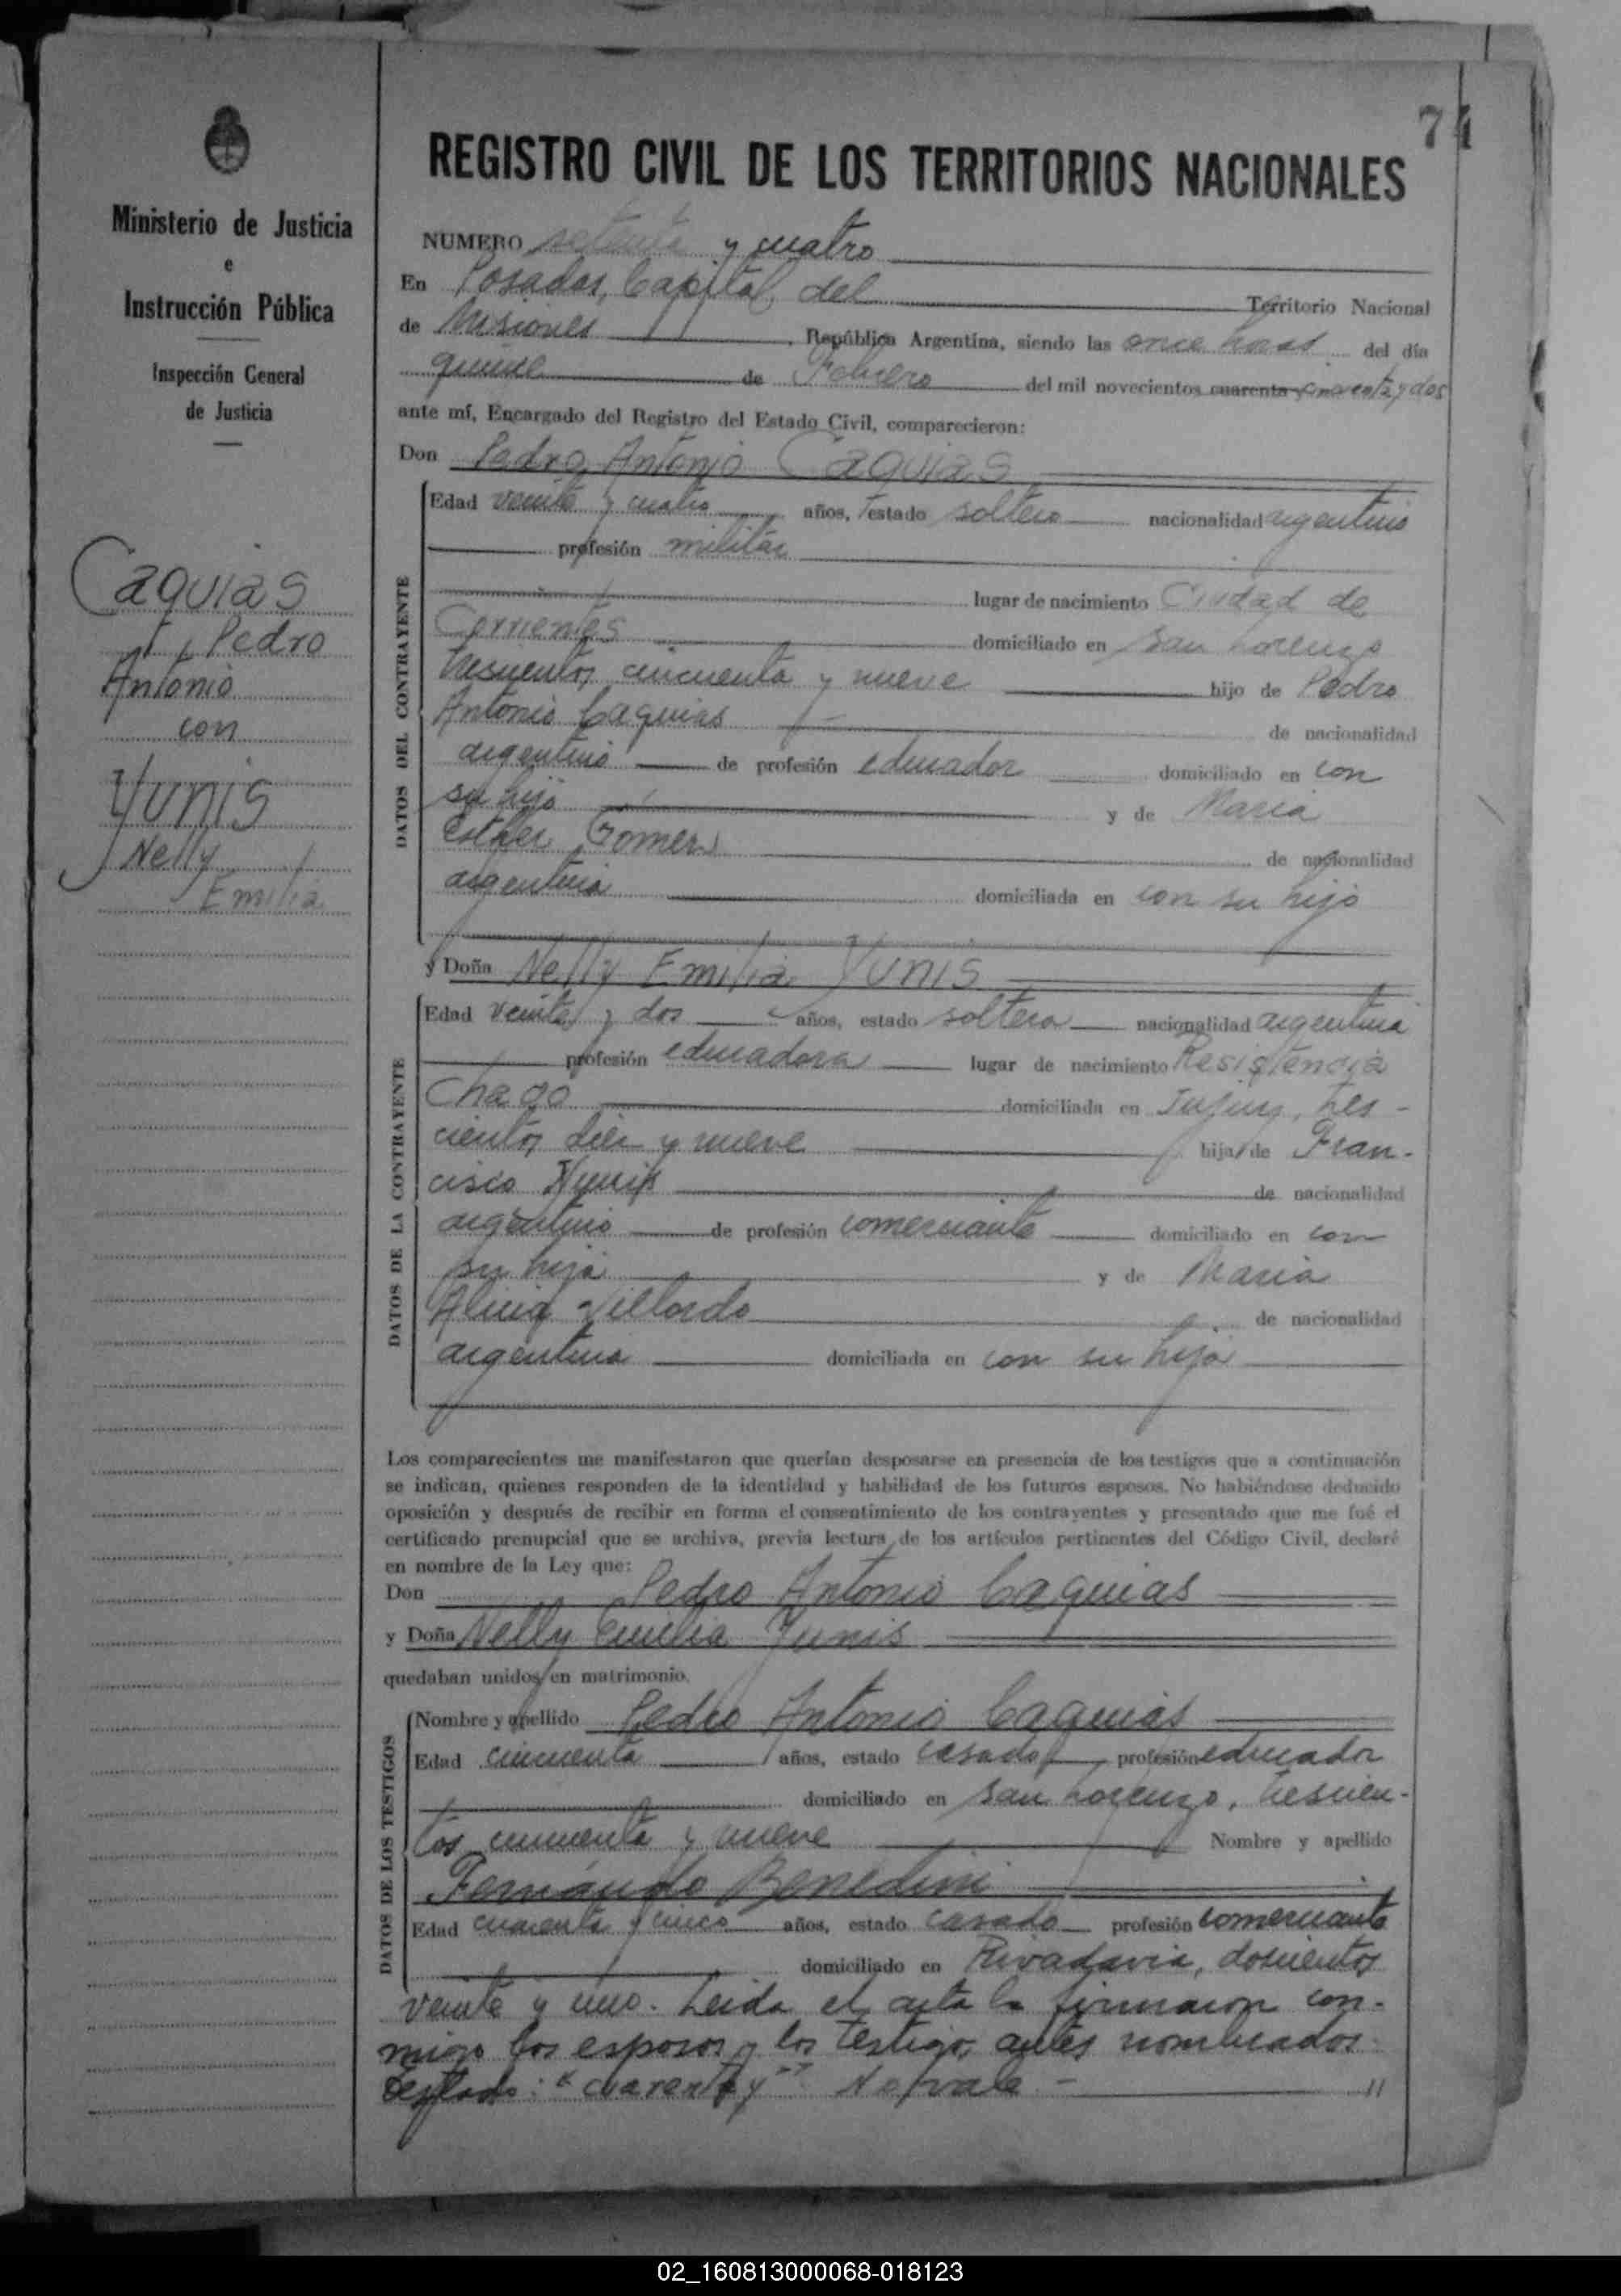 74
Ministerio de Justicia
e
Instrucción Pública
Inspección General
de Justicia
Caquias
Pedro
Antonio
con
Yunis
Nelly
Emilia
REGISTRO CIVIL DE LOS TERRITORIOS NACIONALES
NUMERO setenta y cuatro
En Posadas, Capital del Territorio Nacional
de Misiones, República Argentina, siendo las once horas del día
quince de Febrero del mil novecientos cuarenta y cincuenta y dos
ante mí, Encargado del Registro del Estado Civil, comparecieron:
Don Pedro Antonio Caquias
DATOS DEL CONTRAYENTE
Edad veinte y cuatro años, estado soltero nacionalidad argentino
profesión militar
lugar de nacimiento Ciudad de
Corrientes domiciliado en San Lorenzo
trescientos cincuenta y nueve hijo de Pedro
Antonio Caquias de nacionalidad
argentino de profesión educador domiciliado en con
su hijo y de Maria
Esther Gómez de nacionalidad
argentina domiciliada en con su hijo
y Doña Nelly Emilia Yunis
DATOS DE LA CONTRAYENTE
Edad veinte y dos años, estado soltera nacionalidad argentina
profesión educadora lugar de nacimiento Resistencia
Chaco domiciliada en Jujuy, tres-
cientos diez y nueve hija de Fran-
cisco Yunis de nacionalidad
argentino de profesión comerciante domiciliado en con
su hija y de Maria
Alicia Villordo de nacionalidad
argentina domiciliada en con su hija
Los comparecientes me manifestaron que querían desposarse en presencia de los testigos que a continuación
se indican, quienes responden de la identidad y habilidad de los futuros esposos. No habiéndose deducido
oposición y después de recibir en forma el consentimiento de los contrayentes y presentado que me fué el
certificado prenupcial que se archiva, previa lectura de los artículos pertinentes del Código Civil, declaré
en nombre de la Ley que:
Don Pedro Antonio Caquias
y Doña Nelly Emilia Yunis
quedaban unidos en matrimonio.
DATOS DE LOS TESTIGOS
Nombre y apellido Pedro Antonio Caquias
Edad cincuenta años, estado casado profesión educador
domiciliado en San Lorenzo, trescien-
tos cincuenta y nueve Nombre y apellido
Fernando Benedini
Edad cuarenta y cinco años, estado casado profesión comerciante
domiciliado en Rivadavia, doscientos
veinte y uno. Leida el acta la firmaron con-
migo los esposos y los testigos antes nombrados.
Testado: "cuarenta y" No vale - "
02_160813000068-018123